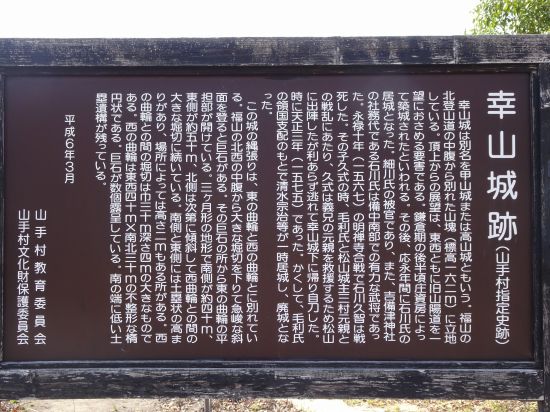 幸山城跡(山手村指定史跡)
幸山城は別名を甲山城または高山城ともいう。福山の
北登山道の中腹から別れた山塊(標高一六二m)に立地
している。頂上からの展望は、東西ともに旧山陽道を一
望におさめる要害である。鎌倉期の後半頃庄資房によっ
て築城されたといわれる。その後、応永年間に石川氏の
居城となった。細川氏の被官であり、また、吉備津神社
の社務代である石川氏は備中南部での有力な武将であっ
た。永禄十年(一五六七)の明禅寺合戦で石川久智は戦
死した。その子久式の時、毛利氏と松山城主三村元親と
の戦乱にあたり、久式は義兄の元親を救援するため松山
に出陣したが利あらず逃れて幸山城下に帰り自刀した。
時に天正三年(一五七五)であった。かくして、毛利氏
の領国支配のもとで清水宗治等が一時居城し、廃城とな
った。
この城の縄張りは、東の曲輪と西の曲輪とに別れてい
る。福山の北西の中腹から大きな堀切を下りて急峻な斜
面を登ると巨石がある。その巨石の所から東の曲輪の平
坦部が開けている。三ヶ月形の地形で南側が約四十m、
東側が約五十m、北側は次第に傾斜して西曲輪との間の
大きな堀切に続いている。南側と東側には土塁状の高ま
りがあり、場所によっては高さ二mもある所がある。西
の曲輪との間の堀切は巾三十m深さ四mの大きなもので
ある。西の曲輪は東西四十m×南北三十mの不整形な楕
円状である。巨石が数個露呈している。南の端に低い土
塁遺構が残っている。
平成6年3月
山手村教育委員会
山手村文化財保護委員会